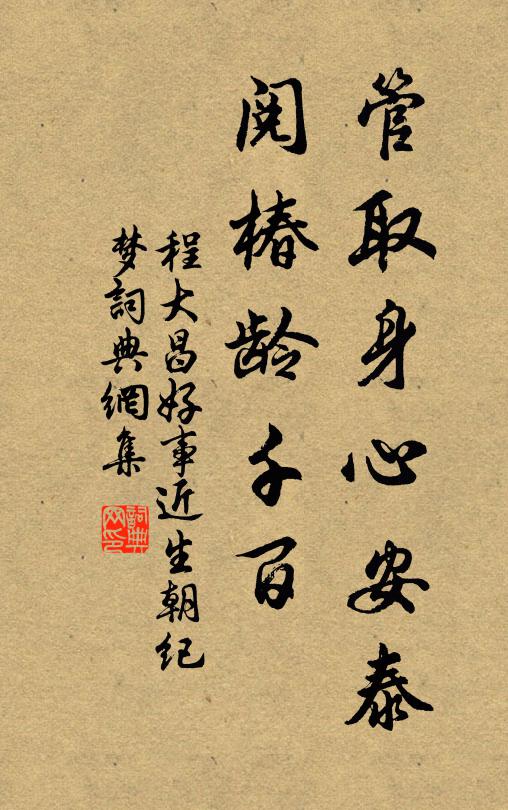 管取身心安泰
阅椿龄千百
程大昌好事近生朝纪
梦詞典網集
詞典
网印